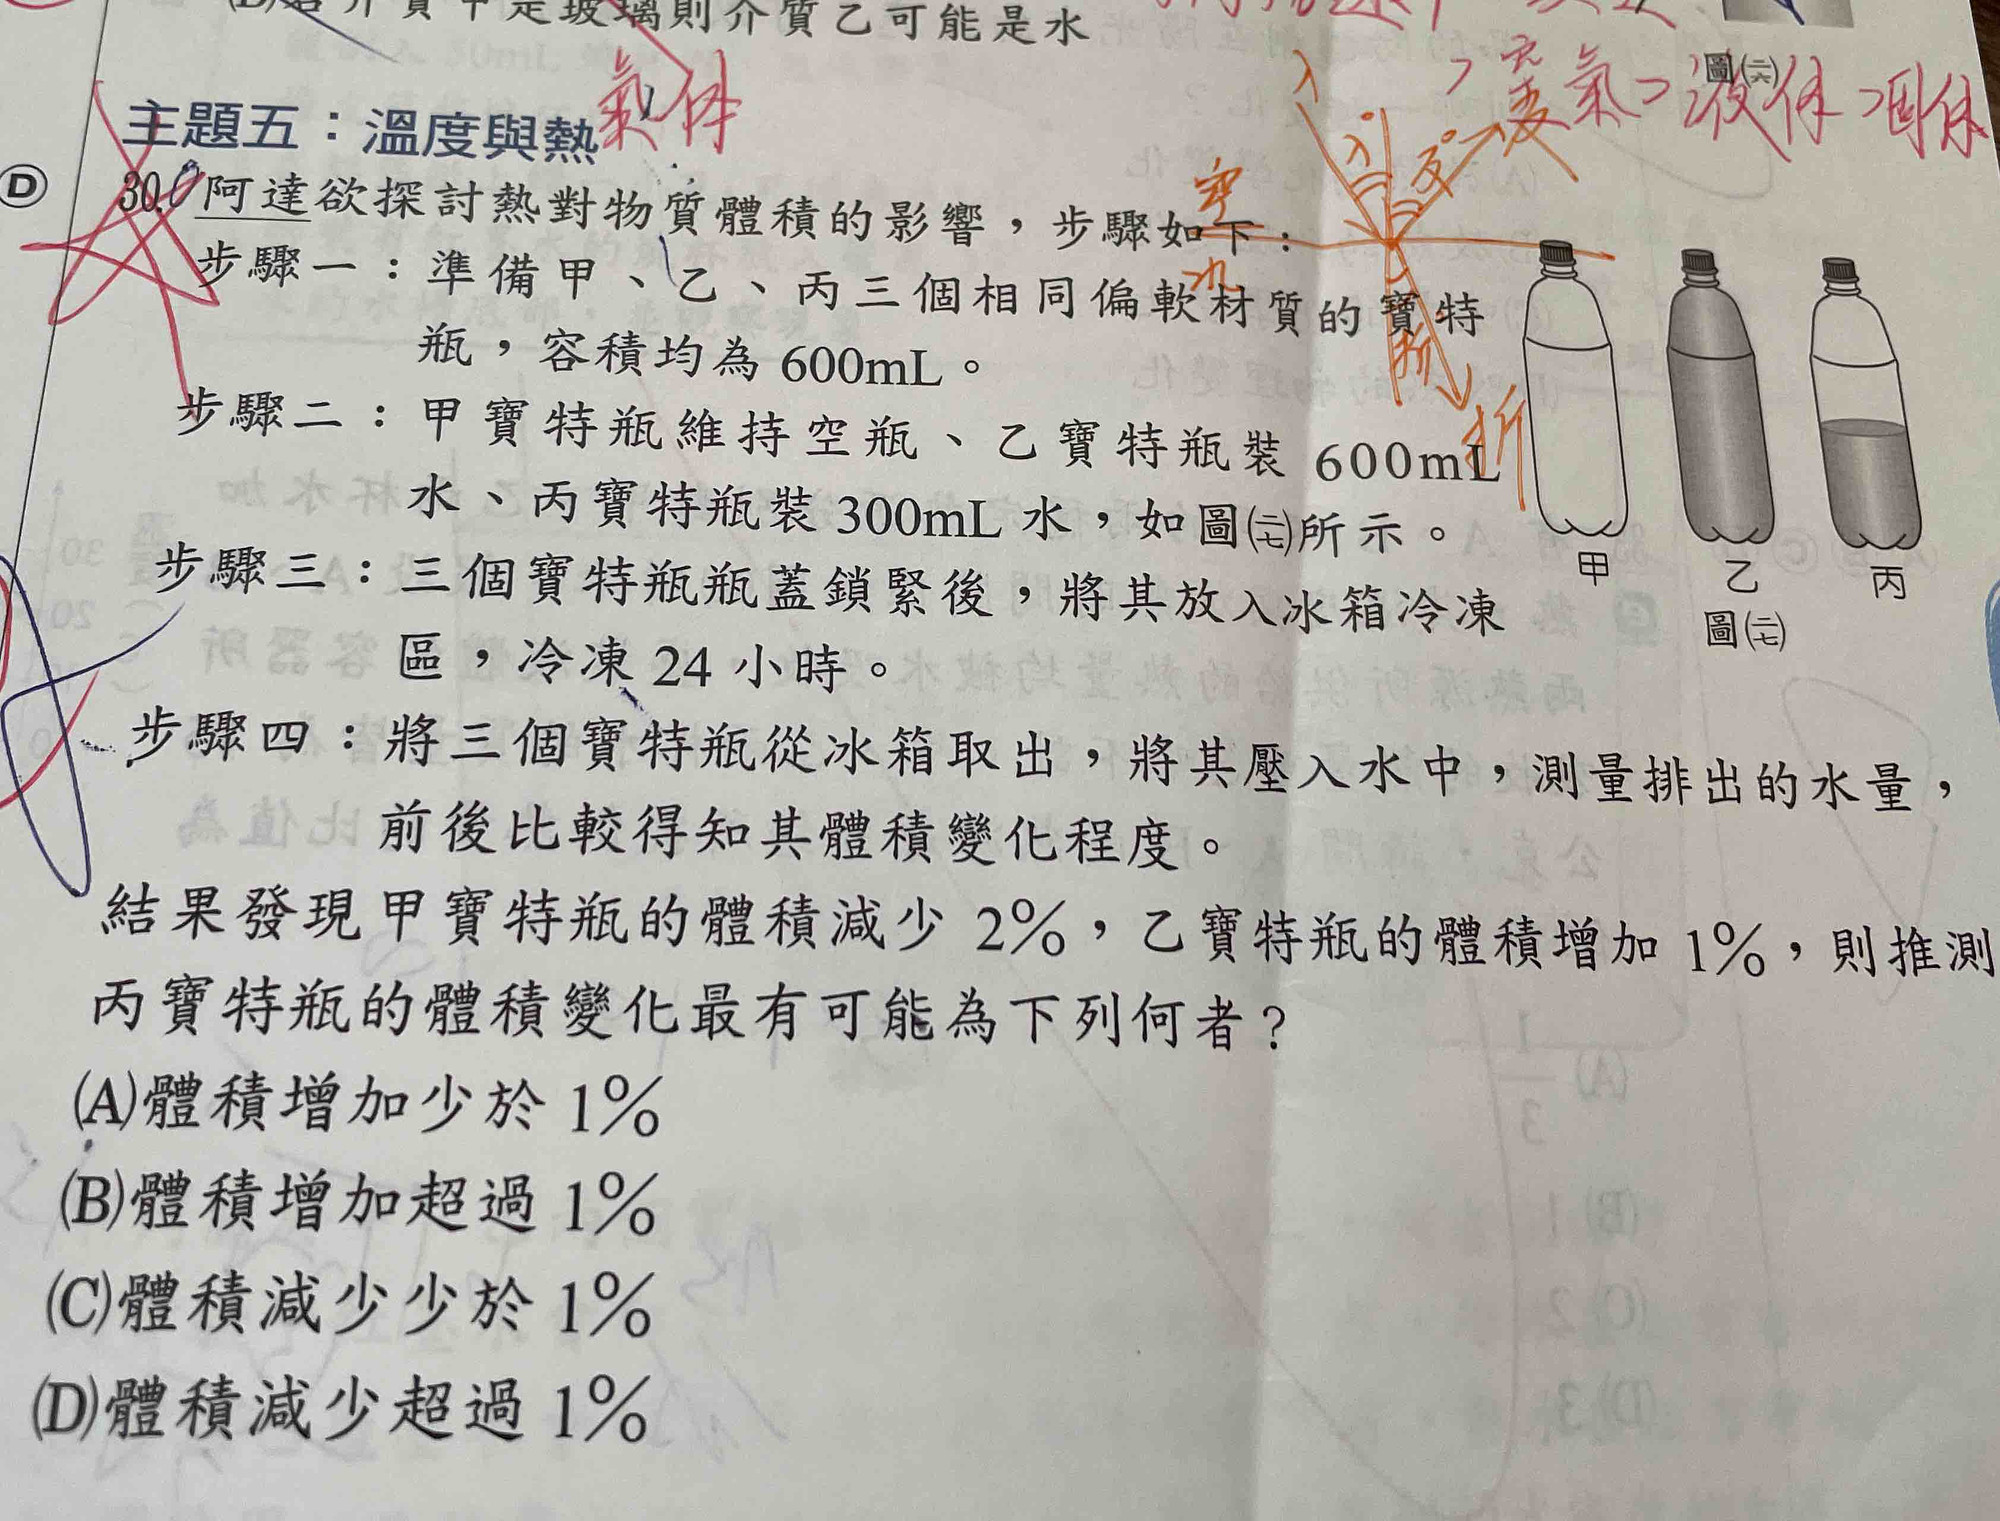 若介質甲是玻璃則介質乙可能是水
圖(二六)
空氣>液体>固体
氣体
主題五：溫度與熱
D
30. 阿達欲探討熱對物質體積的影響，步驟如下：
空
水
入
折
步驟一：準備甲、乙、丙三個相同偏軟材質的寶特
瓶，容積均為 600mL。
步驟二：甲寶特瓶維持空瓶、乙寶特瓶裝 600mL
水、丙寶特瓶裝 300mL 水，如圖(二七)所示。
步驟三：三個寶特瓶瓶蓋鎖緊後，將其放入冰箱冷凍
區，冷凍 24 小時。
甲
乙
丙
圖(二七)
步驟四：將三個寶特瓶從冰箱取出，將其壓入水中，測量排出的水量，
前後比較得知其體積變化程度。
結果發現甲寶特瓶的體積減少 2%，乙寶特瓶的體積增加 1%，則推測
丙寶特瓶的體積變化最有可能為下列何者？
(A)體積增加少於 1%
(B)體積增加超過 1%
(C)體積減少少於 1%
(D)體積減少超過 1%